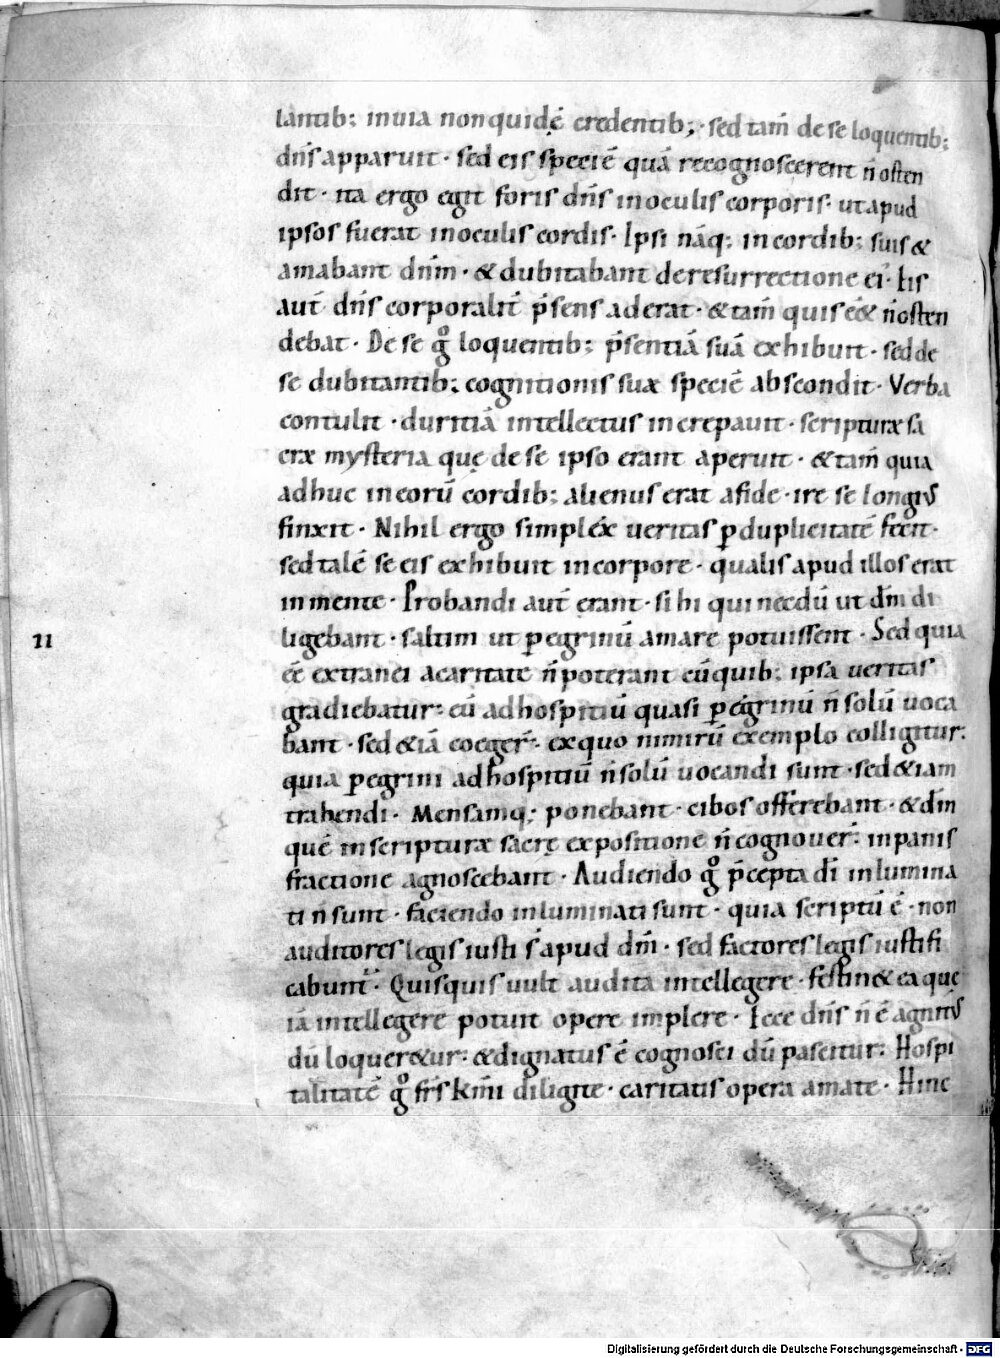 lantib; inuia non quidē credentib; · sed tam̄ de se loquentib;
dn̄s apparuit · sed eis speciē quā recognoscerent n̄ osten
dit · ita ergo egit foris dn̄s in oculis corporis · ut apud
ipsos fuerat in oculis cordis · Ipsi nāq; in cordib; suis &
amabant dn̄m · & dubitabant de resurrectione ei · Iis
aut̄ dn̄s corporalit̄ p̄sens aderat · & tam̄ quis eē& n̄ osten
debat · De se gͦ loquentib; p̄sentiā suā exhibuit · sed de
se dubitantib; cognitionis suæ speciē abscondit · Verba
contulit · duritiā intellectus increpauit · scripturæ sa
cræ mysteria quę de se ipso erant aperuit · & tam̄ quia
adhuc in eorū cordib; alienus erat a fide · ire se longius
finxit · Nihil ergo simplex ueritas ꝑ duplicitatē fecit ·
sed talē se eis exhibuit in corpore · qualis apud illos erat
in mente · Probandi aut̄ erant · si hi qui necdū ut dm̄ di
II
ligebant · saltim ut ꝑegrinū amare potuissent · Sed quia
eē extranei a caritate n̄ poterant cū quib; ipsa ueritas
gradiebatur: eū ad hospitiū quasi ꝑegrinū n̄ solū uoca
bant · sed &iā coeger̄ · ex quo nimirū exemplo colligitur:
quia ꝑegrini ad hospitiū n̄ solū uocandi sunt · sed &iam
trahendi · Mensamq; ponebant · cibos offerebant · & dm̄
quē in scripturæ sacrę expositione n̄ cognouer̄: in panis
fractione agnoscebant · Audiendo gͦ p̄cepta dī inlumina
ti n̄ sunt · faciendo inluminati sunt · quia scriptū ē · non
auditores legis iusti s̄ apud dm̄ · sed factores legis iustifi
cabunt̄ · Quisquis uult audita intellegere · festin& ea quę
iā intellegere potuit opere implere · Ecce dn̄s n̄ ē agnitus
dū loquer&ur: & dignatus ē cognosci dū pascitur: Hospi
talitatē gͦ fr̄s km̄i diligite · caritatis opera amate · Hinc
Digitalisierung gefördert durch die Deutsche Forschungsgemeinschaft - DFG